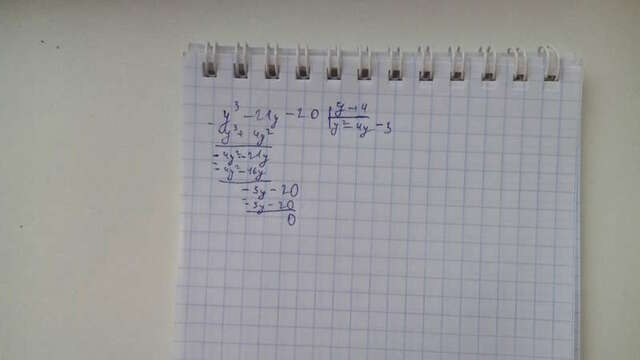 y³ - 21y - 20 | y + 4
- y³ + 4y² | y² - 4y - 5
- 4y² - 21y
- - 4y² - 16y
- 5y - 20
- - 5y - 20
0